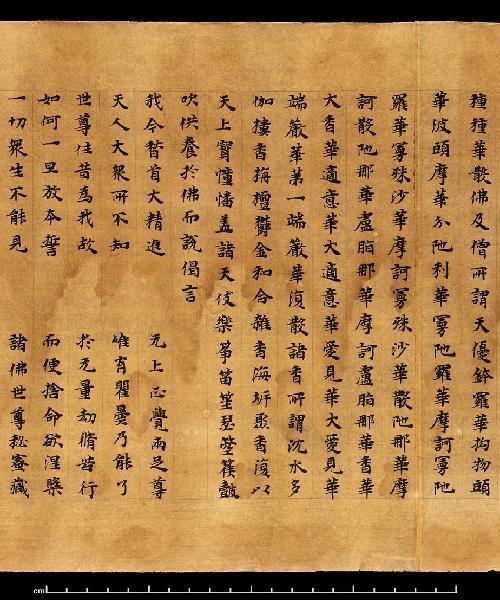 種種華散佛及僧所謂天優鉢羅華拘物頭
華波頭摩華分陁利華曼陁羅華摩訶曼陁
羅華曼殊沙華摩訶曼殊沙華散陁那華摩
訶散陁那華盧脂那華摩訶盧脂那華香華
大香華適意華大適意華愛見華大愛見華
端嚴華第一端嚴華復散諸香所謂沉水多
伽樓香栴檀欝金和合雜香海岸聚香復以
天上寶幢幡盖諸天伎樂箏笛笙瑟箜篌皷
吹供養於佛而說偈言
我今稽首大精進　无上正覺兩足尊
天人大衆所不知　唯有瞿曇乃能了
世尊往昔為我故　於无量劫脩苦行
如何一旦放本誓　而便捨命欲涅槃
一切衆生不能見　諸佛世尊秘密藏
cm